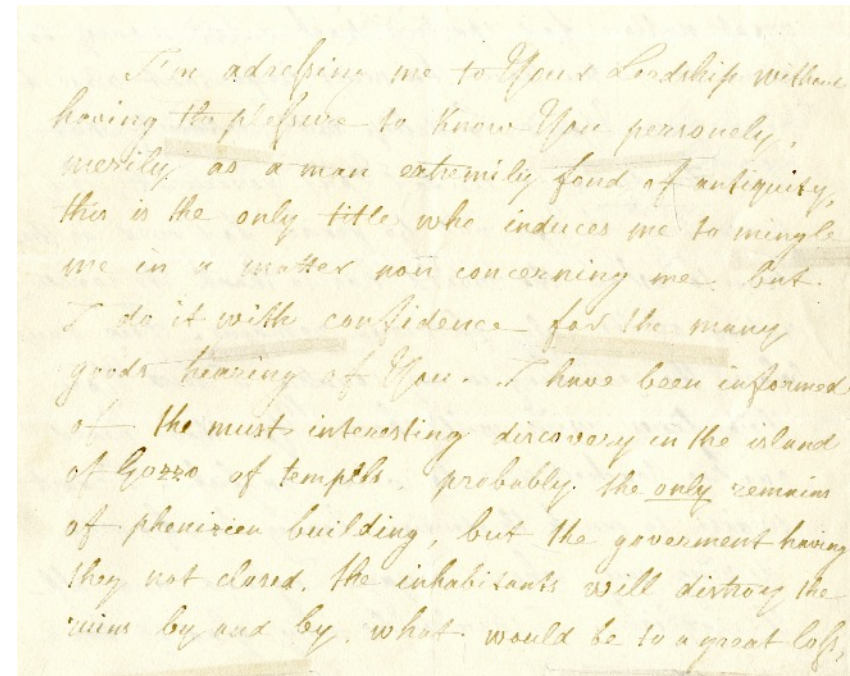 I'm adressing me to Your Lordship without
having the plessure to know You personely,
merily as a man extremily fond of antiquity,
this is the only title who induces me to mingle
me in a matter non concerning me. but
I do it with confidence for the many
goods hearing of You. I have been informed
of the must interesting discovery in the island
of Gozzo of tempels, probably the only remains
of phenizien building, but the goverment having
they not closed, the inhabitants will distroy the
ruins by and by, what would be to a great loss,